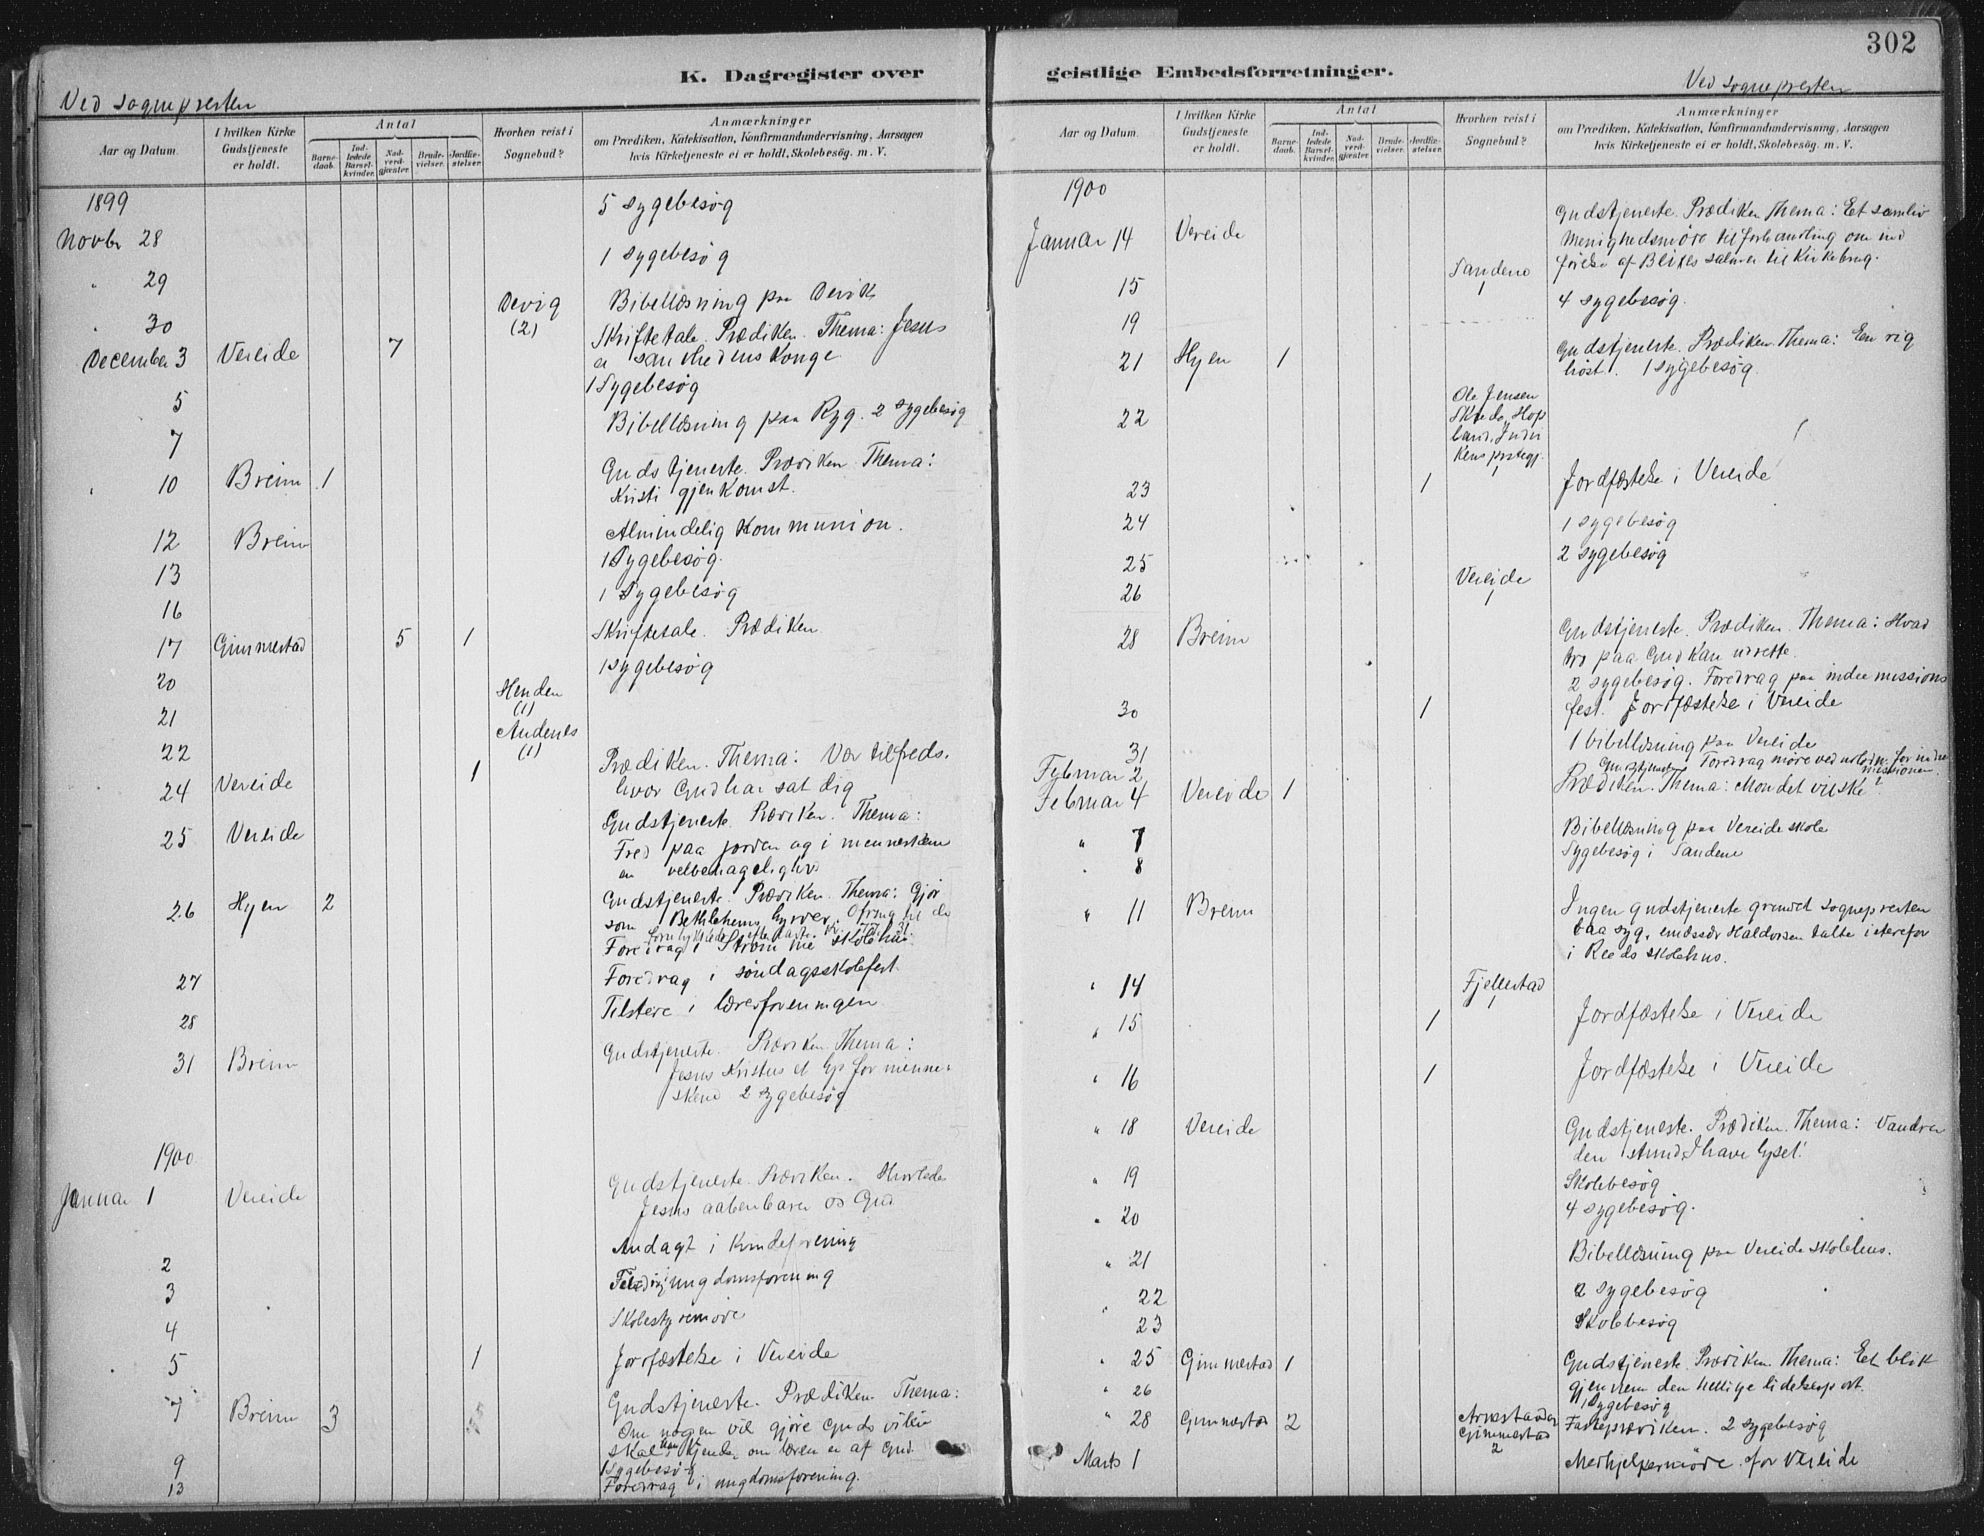 302
K. Dagregister over
geistlige Embedsforretninger.
Ved sognepresten
Aar og Datum.
I hvilken Kirke Gudstjeneste er holdt.
Antal
Barnedaab.
Indledede Barselkvinder.
Nadverdgjester.
Brudevielser.
Jordfæstelser.
Hvorhen reist i Sognebud?
Anmærkninger
om Prædiken, Katekisation, Konfirmandundervisning, Aarsagen
hvis Kirketjeneste ei er holdt, Skolebesøg. m. V.
1899
5 sygebesøg
Novbr 28
1 sygebesøg
" 29
Devig (2) Bibellæsning paa Devik
" 30
Skriftetale. Prædiken. Thema: Jesus
December 3 Vereide 7
er sandhedens Konge
1 Sygebesøg
5
Bibellæsning paa Ryg. 2 sygebesøg
7
Gudstjeneste. Prædiken. Thema:
" 10 Breim 1
Kristi gjenkomst.
12 Breim
Almindelig Kommunion.
13
1 Sygebesøg.
16
1 Sygebesøg
17 Gimmestad 5 1
Skriftetale. Prædiken
20
1 sygebesøg
21
Henden (1)
22
Andenes (1)
24 Vereide 1
Prædiken. Thema: Vær tilfreds,
hvor Gud har sat dig
25 Vereide
Gudstjeneste. Prædiken. Thema:
Fred paa jorden og i menneskene
en velbehagelighed
26 Hyen 2
Gudstjeneste. Prædiken. Thema: Gjør
som Bethlehems hyrder. Ofring til de
Foredrag i Straumme skolehus
27
Foredrag i søndagsskolefest.
28
Tilstede i lærerforeningen
31 Breim
Gudstjeneste. Prædiken. Thema:
Jesus Kristus et lys for menne-
skene 2 sygebesøg
1900
Januar 1 Vereide
Gudstjeneste. Prædiken. Hvorledes
Jesus aabenbarer os Gud
2
Andagt i kvindeforening
3
ungdomsforening
4
Skolestyremøde
5 1
Jordfæstelse i Vereide
7 Breim 3
Gudstjeneste. Prædiken. Thema:
Om nogen vil gjøre Guds vilje
skal han kjende, om læren er af Gud.
9
1 Sygebesøg
13
Foredrag i ungdomsforening.
Ved sognepresten
Aar og Datum.
I hvilken Kirke Gudstjeneste er holdt.
Antal
Barnedaab.
Indledede Barselkvinder.
Nadverdgjester.
Brudevielser.
Jordfæstelser.
Hvorhen reist i Sognebud?
Anmærkninger
om Prædiken, Katekisation, Konfirmandundervisning, Aarsagen
hvis Kirketjeneste ei er holdt, Skolebesøg. m. V.
1900
Januar 14 Vereide
Gudstjeneste. Prædiken Thema: Et samliv
Menighedsmøde til forhandling om ind
førelse af Blixes salmer til Kirkebrug.
15
Sandene 1
4 sygebesøg.
19
21 Hyen 1
Gudstjeneste. Prædiken. Thema: En rig
høst. 1 sygebesøg.
22
Ole Jensen
Skrede, Hop
land, Indvi
kens prstegj.
1
23 1
Jordfæstelse i Vereide
24
1 sygebesøg
25
2 sygebesøg
26
Vereide 1
28 Breim
Gudstjeneste. Prædiken. Thema: Hvad
tro paa Gud kan udrette.
2 sygebesøg. Foredrag paa indremissions
30 1
fest. Jordfæstelse i Vereide
31
1 bibellæsning paa Vereide
Februar 2
Foredrag møde ved for indre missionen.
Februar 4 Vereide 1
Gudstjeneste
Prædiken. Thema: Mon det virke?
" 7
Bibellæsning paa Vereide skole
" 8
Sygebesøg i Sandene
" 11 Breim
Ingen gudstjeneste grundet sognepresten
baa syg, emissær Haldorsen talte istedefor
i Reeds skolehus.
" 14
Fjellestad 1
" 15 1
Jordfæstelse i Vereide
" 16 1
Jordfæstelse i Vereide
" 18 Vereide
Gudstjeneste. Prædiken. Thema: Vandrer
den stund, I have lyset!
" 19
Skolebesøg
" 20
4 sygebesøg.
" 21
Bibellæsning paa Vereide skolehus.
" 22
2 sygebesøg
23
Skolebesøg
" 25 Gimmestad 1
Gudstjeneste. Prædiken. Thema: Et blik
gjennem den hellige lidelsesport.
" 26
1 Sygebesøg
" 28 Gimmestad 2
Gimmestad 2
Fasteprædiken. 2 sygebesøg
Marts 1
Medhjelpermøde for Vereide